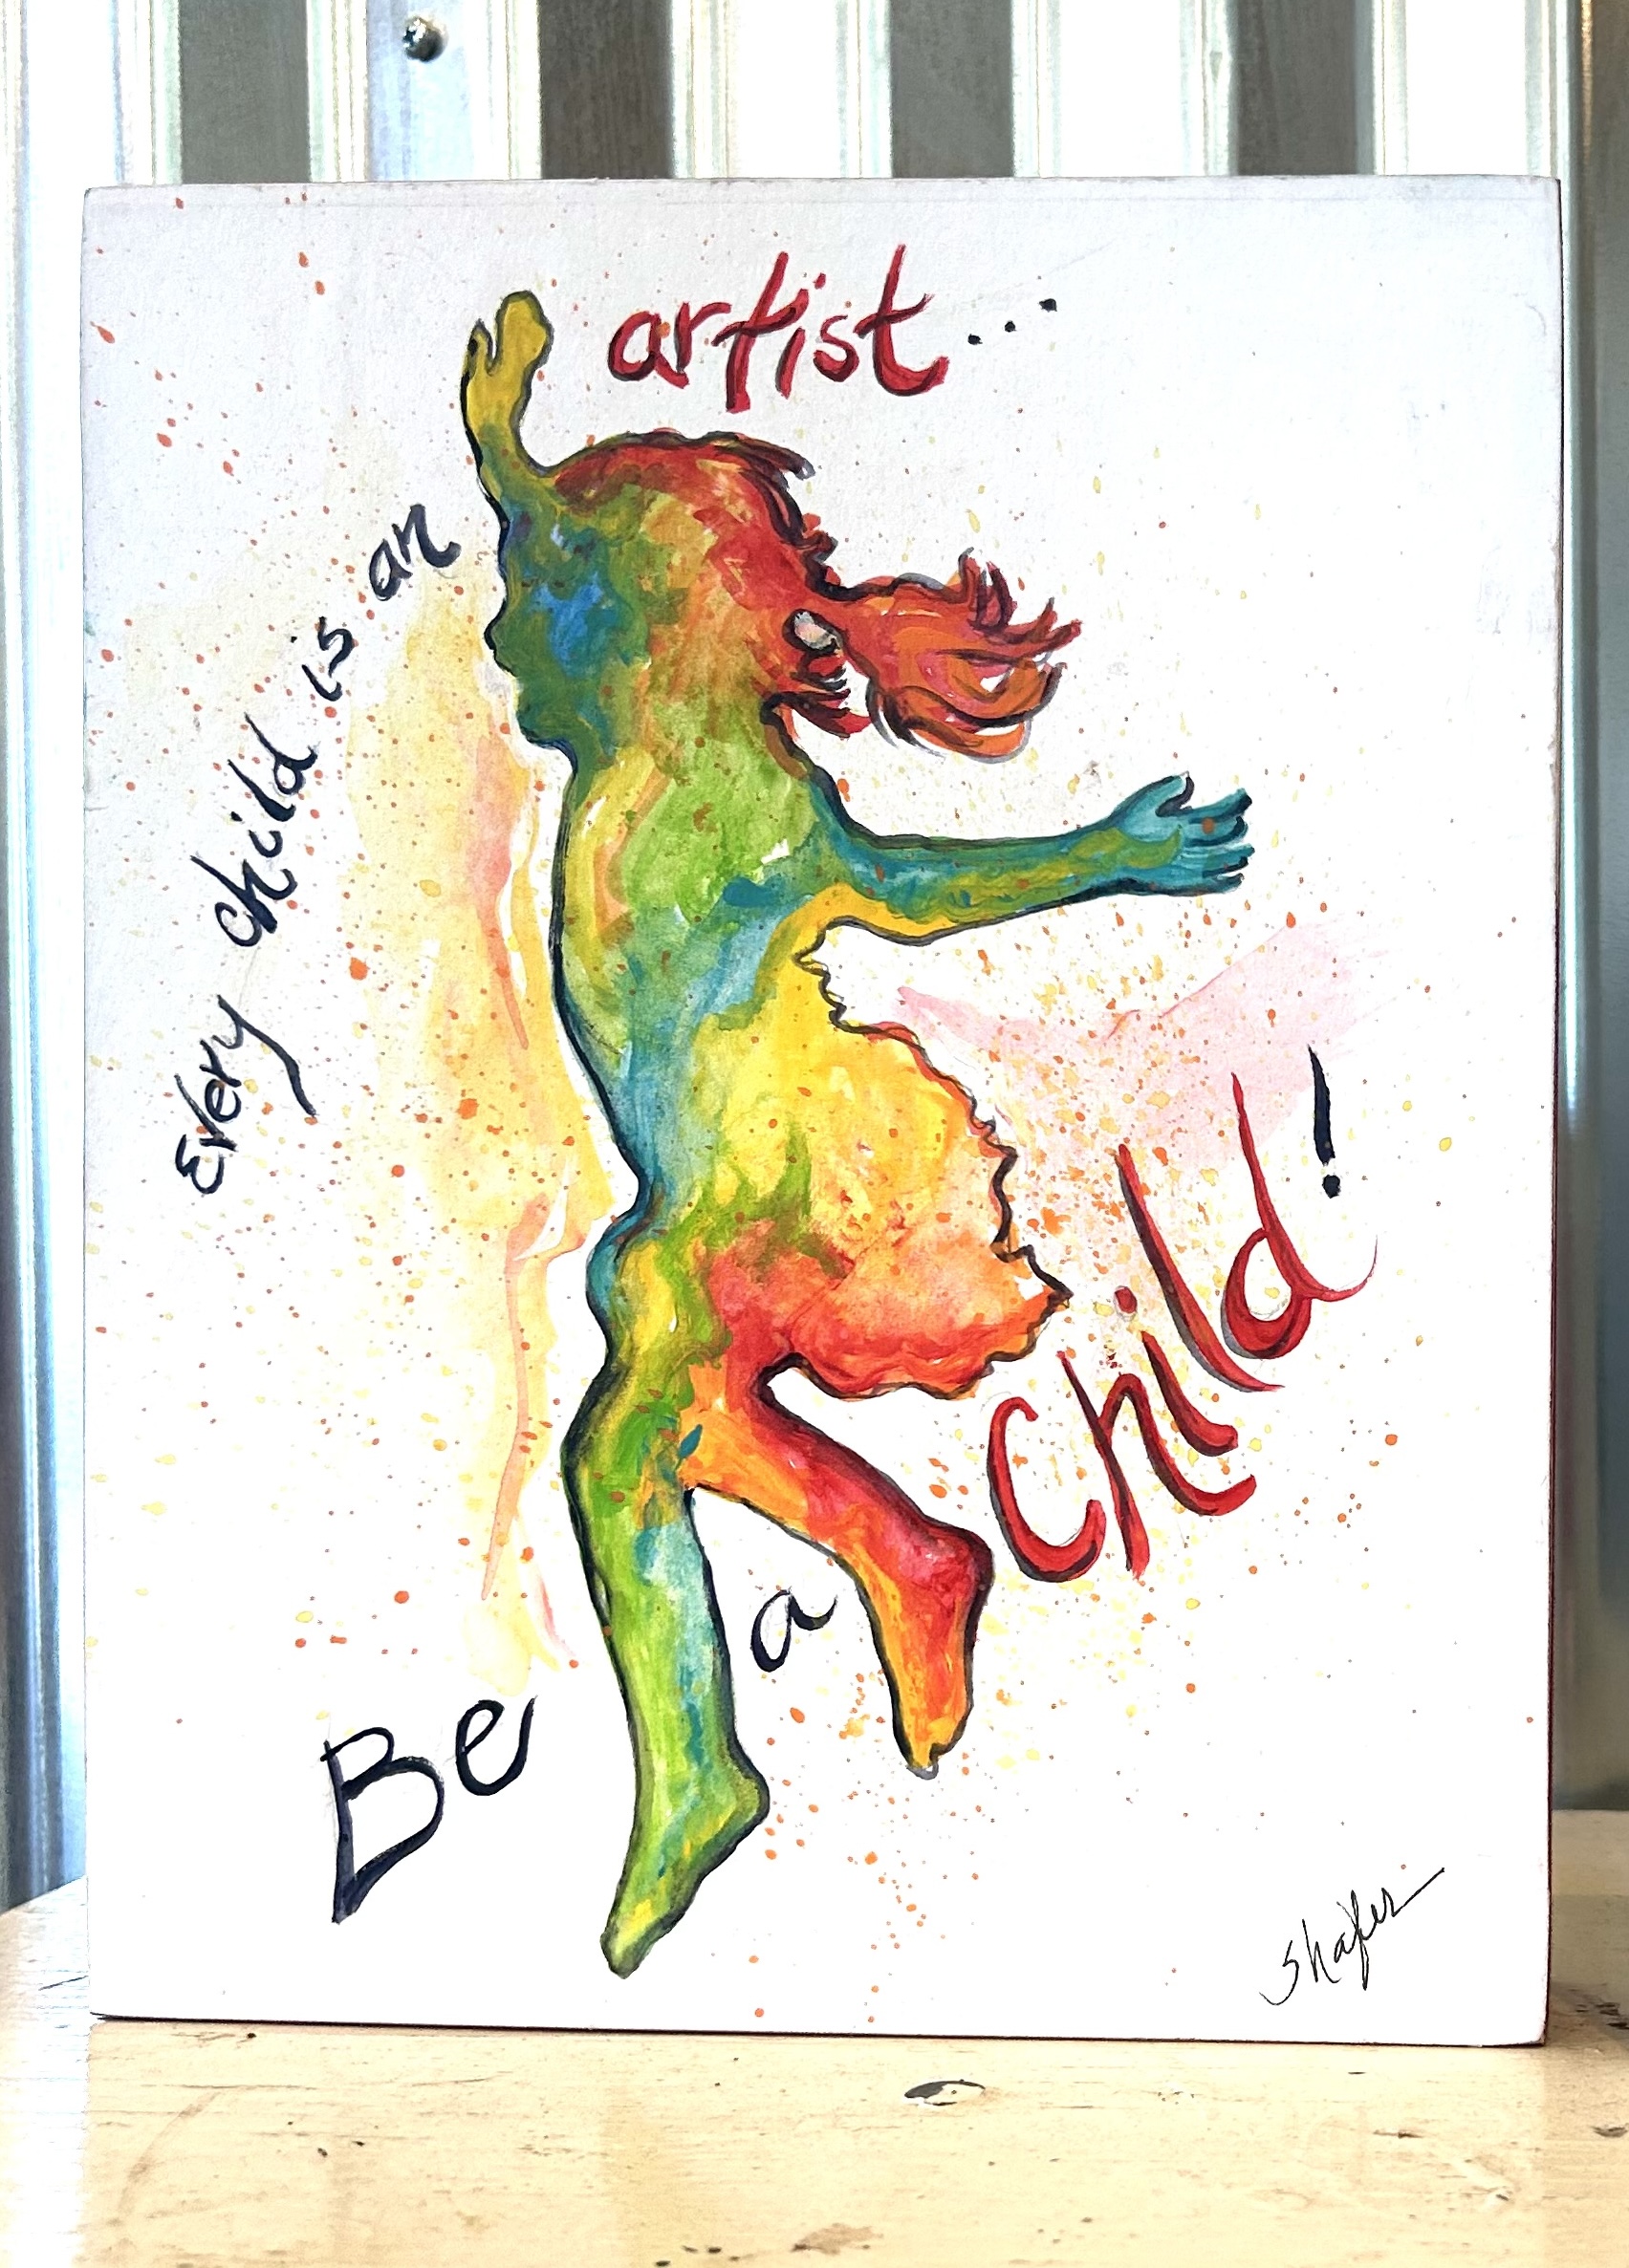 Every child is an
artist...
Be a Child!
Shafer